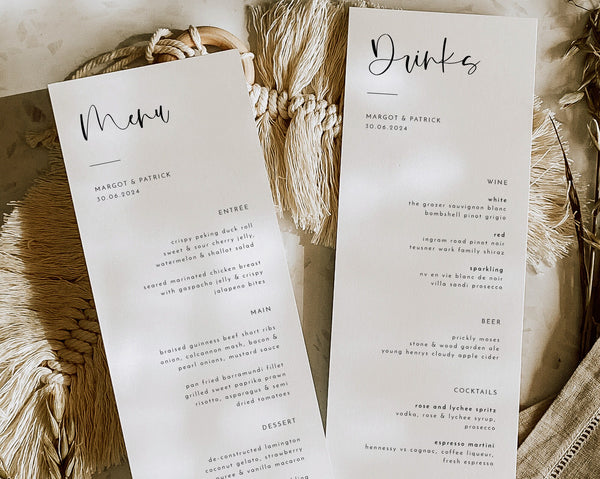 Menu
MARGOT & PATRICK
30.06.2024
ENTRÉE
crispy peking duck roll
sweet & sour cherry jelly,
watermelon & shallot salad
seared marinated chicken breast
with gaspacho jelly & crispy
jalapeno bites
MAIN
braised guinness beef short ribs
onion, colcannon mash, bacon &
pearl onions, mustard sauce
pan fried barramundi fillet
grilled sweet paprika prawn
risotto, asparagus & semi
dried tomatoes
DESSERT
de-constructed lamington
coconut gelato, strawberry
puree & vanilla macaron
Drinks
MARGOT & PATRICK
30.06.2024
WINE
white
the grazer sauvignon blanc
bombshell pinot grigio
red
ingram road pinot noir
teusner wark family shiraz
sparkling
nv en vie blanc de noir
villa sandi prosecco
BEER
prickly moses
stone & wood garden ale
young henrys cloudy apple cider
COCKTAILS
rose and lychee spritz
vodka, rose & lychee syrup,
prosecco
espresso martini
hennessy vs cognac, coffee liqueur,
fresh espresso